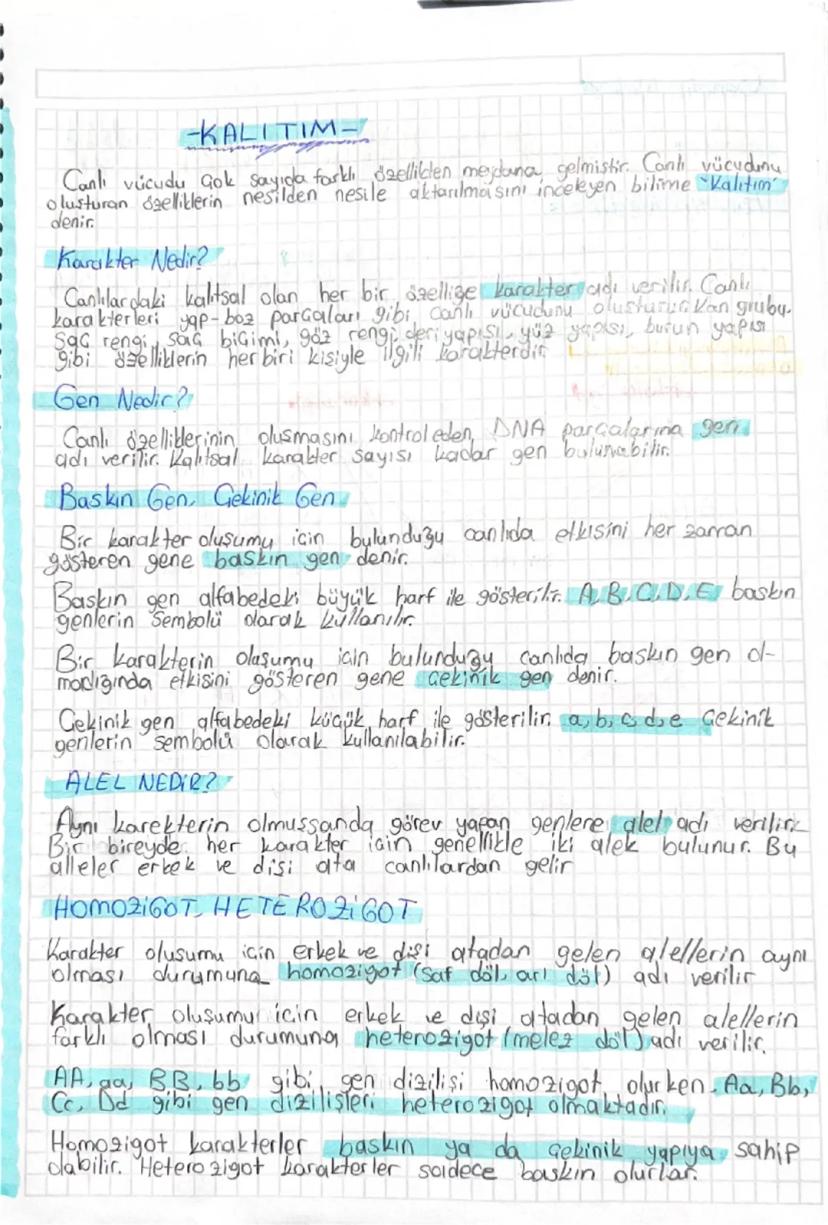 -KALITIM-
Canlı vücudu çok sayıda farklı özellikten meydana gelmiştir. Canlı vücudunu
oluşturan özelliklerin nesilden nesile aktarılmasını inceleyen bilime "Kalıtım"
denir.
Karakter Nedir?
Canlılardaki kalıtsal olan her bir özelliğe karakter adı verilir. Canlı
karakterleri yap-boz parçaları gibi canlı vücudunu oluşturur. Kan grubu,
Saç rengi, saç biçimi, göz rengi, deri yapısı, yüz yapısı, burun yapısı
gibi özelliklerin her biri kişiyle ilgili karakterdir.
Gen Nedir?
Canlı özelliklerinin oluşmasını kontrol eden DNA parçalarına gen
adı verilir. Kalıtsal karakter sayısı kadar gen bulunabilir.
Baskın Gen, Çekinik Gen
Bir karakter oluşumu için bulunduğu canlıda etkisini her zaman
gösteren gene baskın gen denir.
Baskın gen alfabedeki büyük harf ile gösterilir. A, B, C, D, E baskın
genlerin sembolü olarak kullanılır.
Bir karakterin oluşumu için bulunduğu canlıda baskın gen ol-
madığında etkisini gösteren gene çekinik gen denir.
Çekinik gen alfabedeki küçük harf ile gösterilir. a, b, c, d, e Çekinik
genlerin sembolü olarak kullanılabilir.
ALEL NEDİR?
Aynı karekterin olmussanda görev yapan genlere alel adı verilir.
Bir bireyde her karakter için genellikle iki alek bulunur. Bu
alleler erkek ve dişi ata canlılardan gelir
HOMOZİGOT, HETEROZİGOT
Karakter oluşumu için erkek ve dişi atadan gelen alellerin aynı
olması durumuna homozigot (saf döl, arı döl) adı verilir
Karakter oluşumu için erkek ve dişi atadan gelen alellerin
farklı olması durumuna heterozigot (melez döl) adı verilir.
AA, aa, BB, bb gibi gen dizilişi homozigot olurken Aa, Bb,
Cc, Dd gibi gen dizilişleri heterozigot olmaktadır.
Homozigot karakterler baskın ya da çekinik yapıya sahip
olabilir. Heterozigot karakterler saidece baskın olurlar.